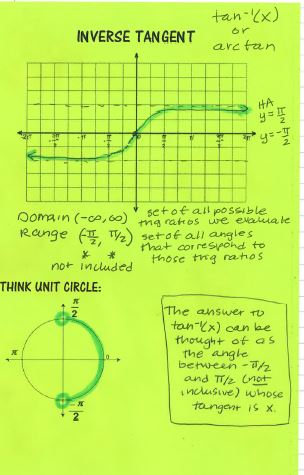 tan⁻¹(x)
or
arctan
INVERSE TANGENT
HA
y = π/2
y = -π/2
Domain (-∞,∞) set of all possible trig ratios we evaluate
Range (-π/2, π/2) set of all angles that correspond to those trig ratios
* *
not included
THINK UNIT CIRCLE:
π/2
π
0
-π/2
The answer to
tan⁻¹(x) can be
thought of as
the angle
between -π/2
and π/2 (not
inclusive) whose
tangent is x.